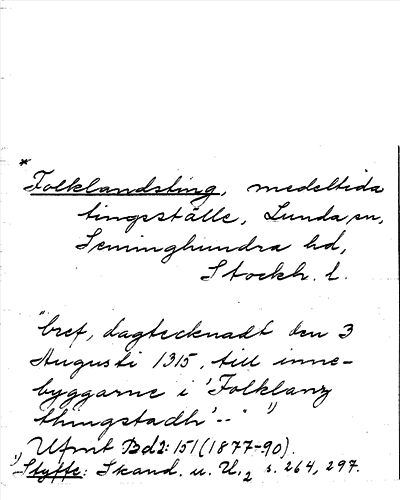 *
Folklandsting, medeltida
tingsställe, Lunda sn,
Seminghundra hd,
Stockh. l.
"bref, dagtecknadt den 3
Augusti 1315, till inne-
byggarne i 'Folklanz
thingstadh'--"
Ufmt Bd 2: 151 (1877-90).
Styffe: Skand. u. U.2 s. 264, 297.